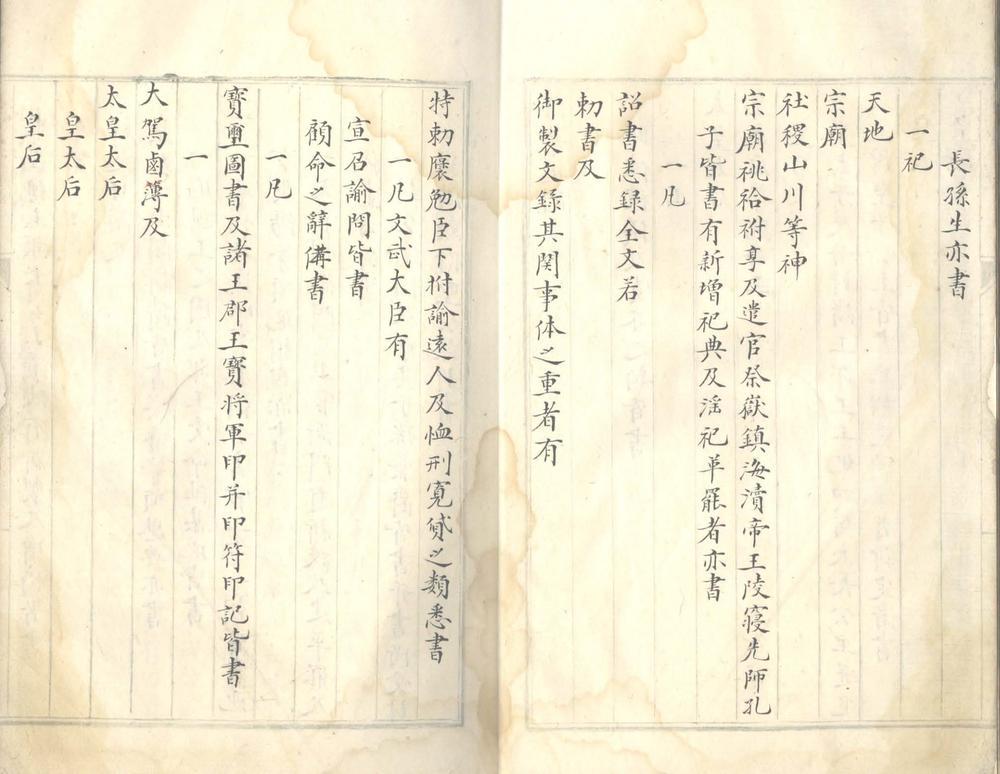 長孫生亦書
一祀
天地
宗廟
社稷山川等神
宗廟祧祫祔享及遣官祭嶽鎮海瀆帝王陵寢先師孔
子皆書有新增祀典及淫祀革罷者亦書
一凡
詔書悉録全文若
勑書及
御製文録其関事体之重者有
特勑褒勉臣下拊諭遠人及恤刑寛貸之類悉書
一凡文武大臣有
宣召諭問皆書
顧命之辭備書
一凡
寳璽圖書及諸王郡王寳将軍印并印符印記皆書
一
大駕鹵簿及
太皇太后
皇太后
皇后